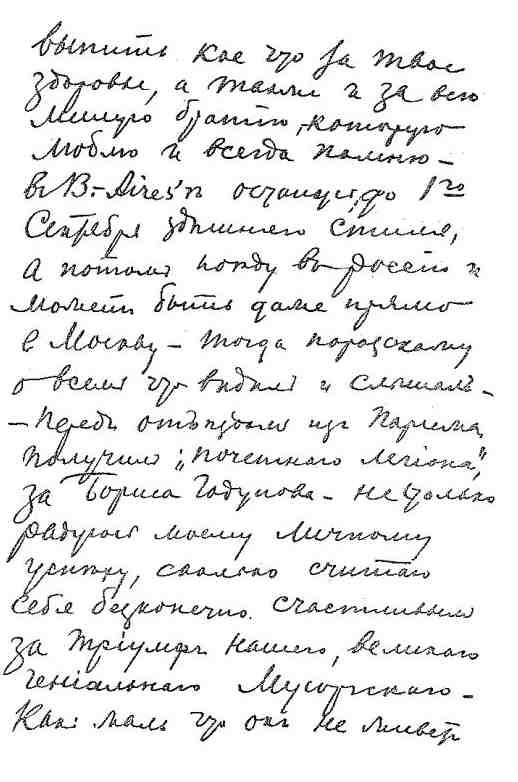 выпить кое что за твое
здоровье, а также и за всю
милую братiю, которую
люблю и всегда помню –
въ B.-Aires'ѣ останусь до 1го
Сентября здѣшняго стиля,
а потомъ поѣду въ Росею и
можетъ быть даже прямо
в Москву – тогда порозскажу
о всемъ что видѣлъ и слышалъ –
– Передъ отъѣздомъ изъ Парижа,
получилъ „почетнаго легiона",
за Бориса Годунова – не только
радуюсь моему личному
успѣху, сколько считаю
себя безконечно счастливымъ
за трiумфъ нашего, великаго
генiальнаго Мусоргскаго –
Какъ жаль что онъ не живетъ